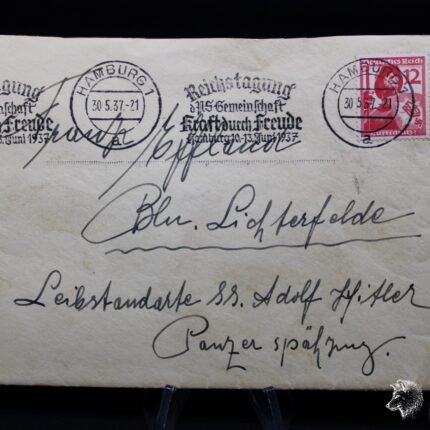 HAMBURG 1
30.5.37.-21
a
tagung
einschaft
Freude
Juni 1937
Reichstagung
d NS Gemeinschaft
Kraft durch Freude
Hamburg 10.-13. Juni 1937
HAMBURG
30.5.37.-21
a
Deutsches Reich
12
Luftschutz
Frank
Bln. Lichterfelde
Leibstandarte SS. Adolf Hitler
Panzerspähzug.